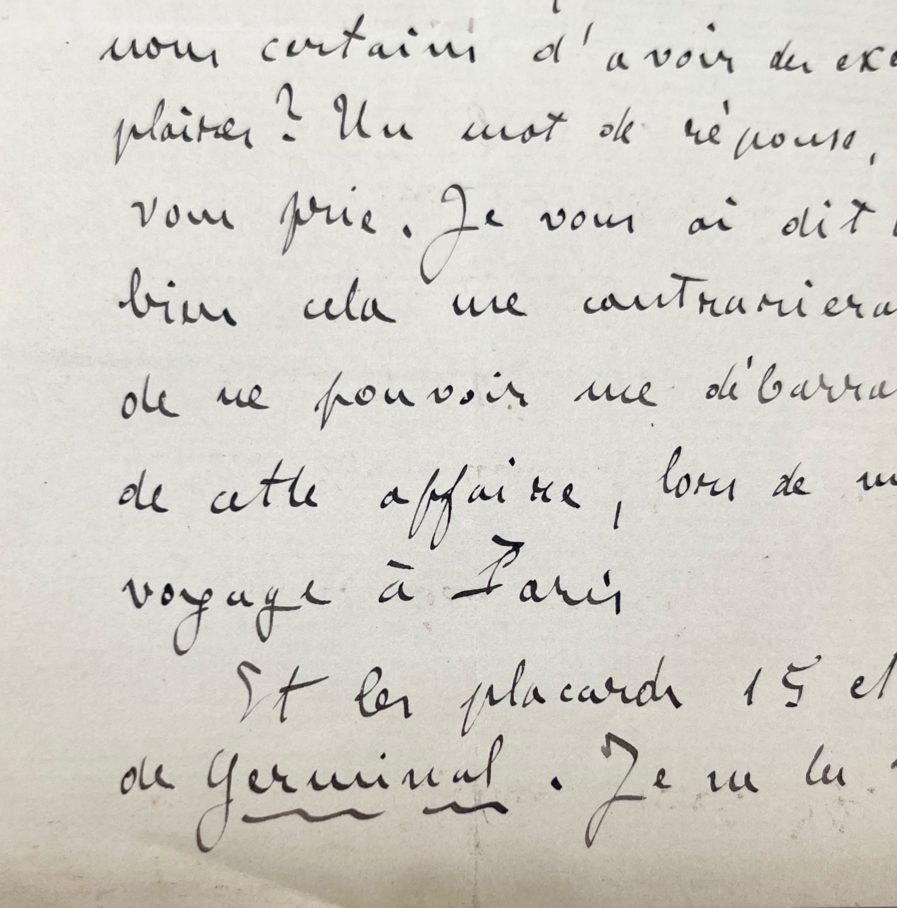 nous certains d'avoir des exe
plaires? Un mot de réponse,
vous prie. Je vous ai dit
bien cela me contrariera
de ne pouvoir me débarra
de cette affaire, lors de m
voyage à Paris
Et les placards 15 et
de Germinal. Je ne les